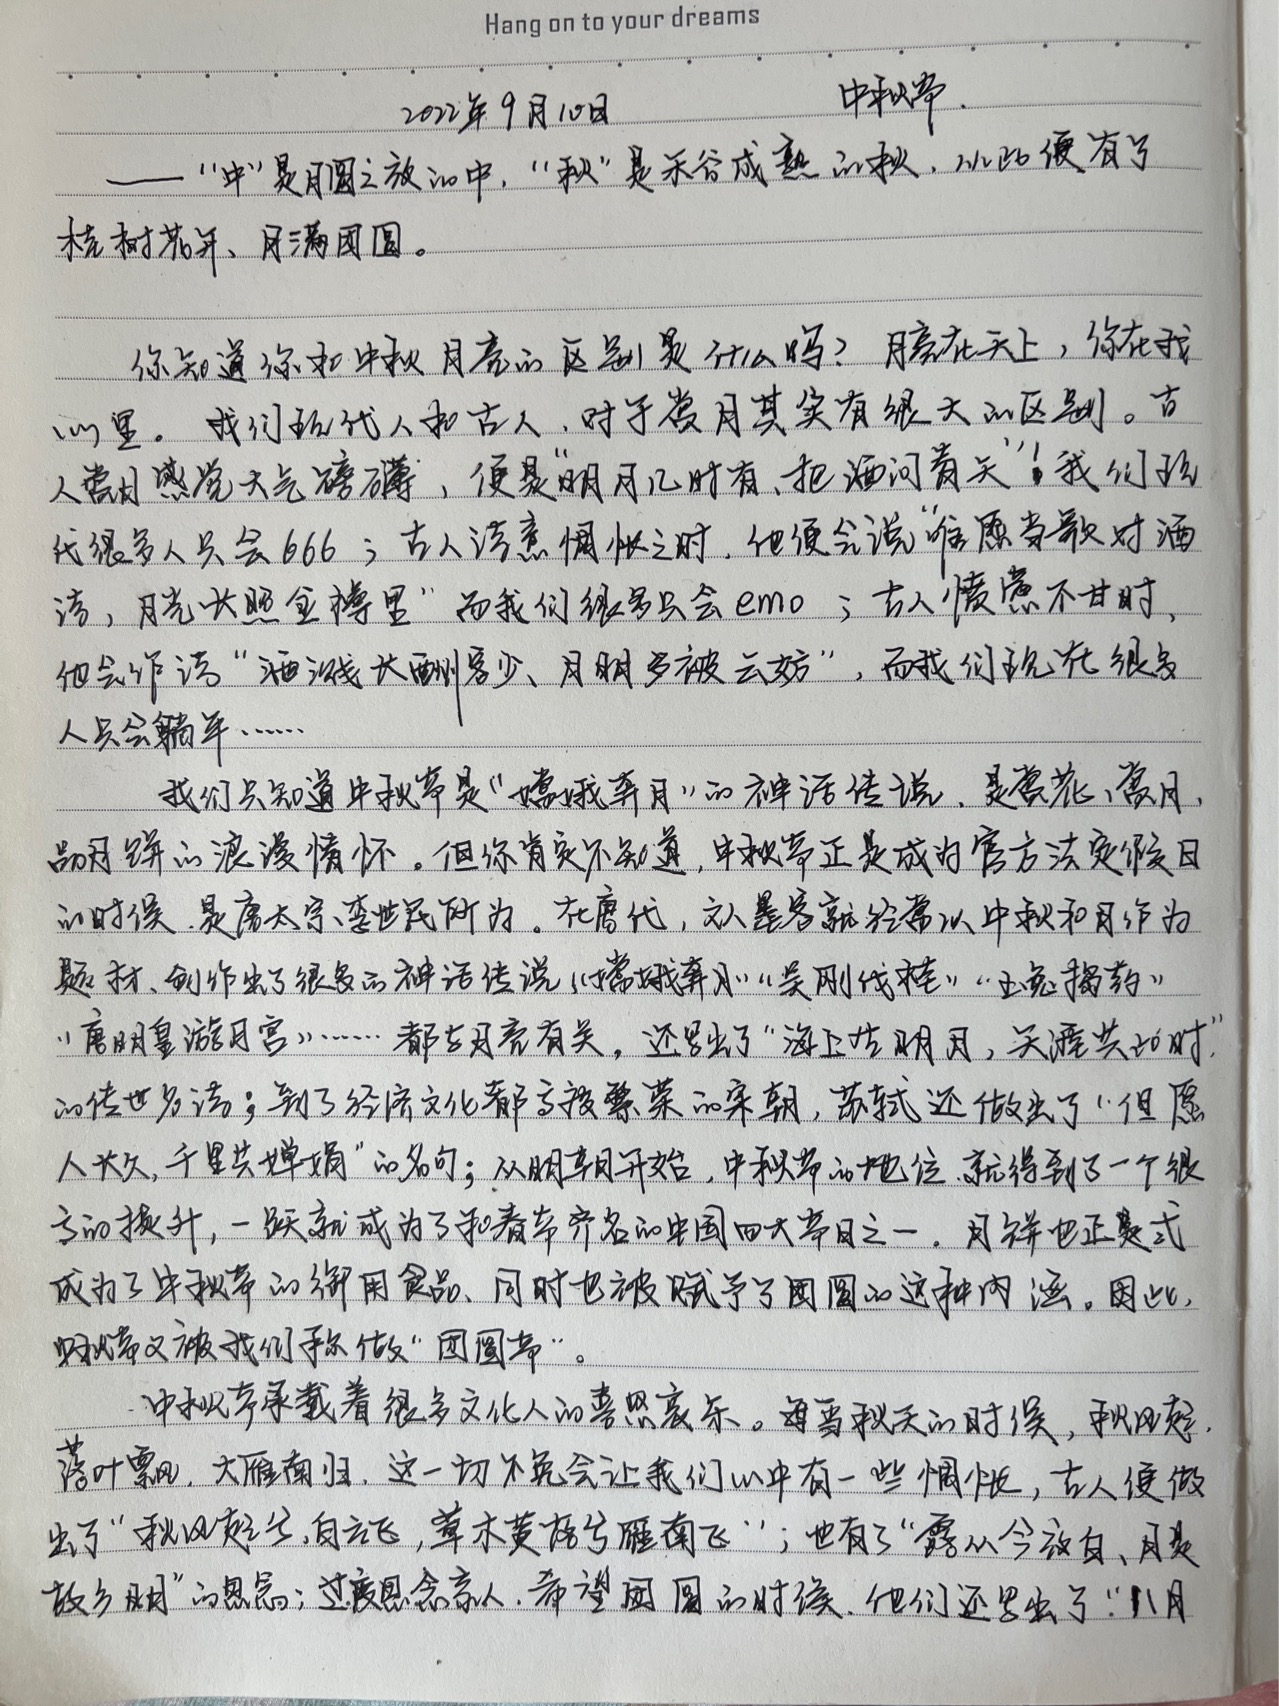 Hang on to your dreams
2022年9月10日 中秋节.
——“中”是月圆之夜的中，“秋”是禾谷成熟的秋、从此便有了
桂树花开、月满团圆。
你知道你和中秋月亮的区别是什么吗？月亮在天上，你在我
心里。我们现代人和古人、对于赏月其实有很大的区别。古
人赏月感觉大气磅礴，便是“明月几时有、把酒问青天”！我们现
代很多人只会666；古人诗意惆怅之时、他便会说“唯愿当歌对酒
诗，月光长照金樽里”而我们很多只会emo；古人愤懑不甘时、
他会作诗“酒浅长酬客少、月明多被云妨”，而我们现在很多
人只会躺平……
我们只知道中秋节是“嫦娥奔月”的神话传说、是赏花、赏月、
品月饼的浪漫情怀。但你肯定不知道，中秋节正是成为官方法定假日
的时候、是唐太宗、李世民所为。在唐代，文人墨客就经常以中秋和月作为
题材、创作出了很多的神话传说《嫦娥奔月》《吴刚伐桂》《玉兔捣药》
《唐明皇游月宫》……都与月亮有关，还写出了“海上生明月，天涯共此时”
的传世名诗；到了经济文化都高援繁荣的宋朝，苏轼还做出了“但愿
人长久，千里共婵娟”的名句；从明朝开始，中秋节的地位、就得到了一个很
高的提升，一跃就成为了和春节齐名的中国四大节日之一。月饼也正是式
成为了中秋节的御用食品、同时也被赋予了团圆的这种内涵。因此，
中秋节又被我们称做“团圆节”。
中秋节承载着很多文化人的喜怒哀乐。每当秋天的时候，秋风起、
落叶飘、大雁南归、这一切不免会让我们心中有一些惆怅，古人便做
出了“秋风起兮、白云飞，草木黄落兮雁南飞”；也有了“露从今夜白、月是
故乡明”的思念；过度思念亲人、希望团圆的时候、他们还写出了“八月